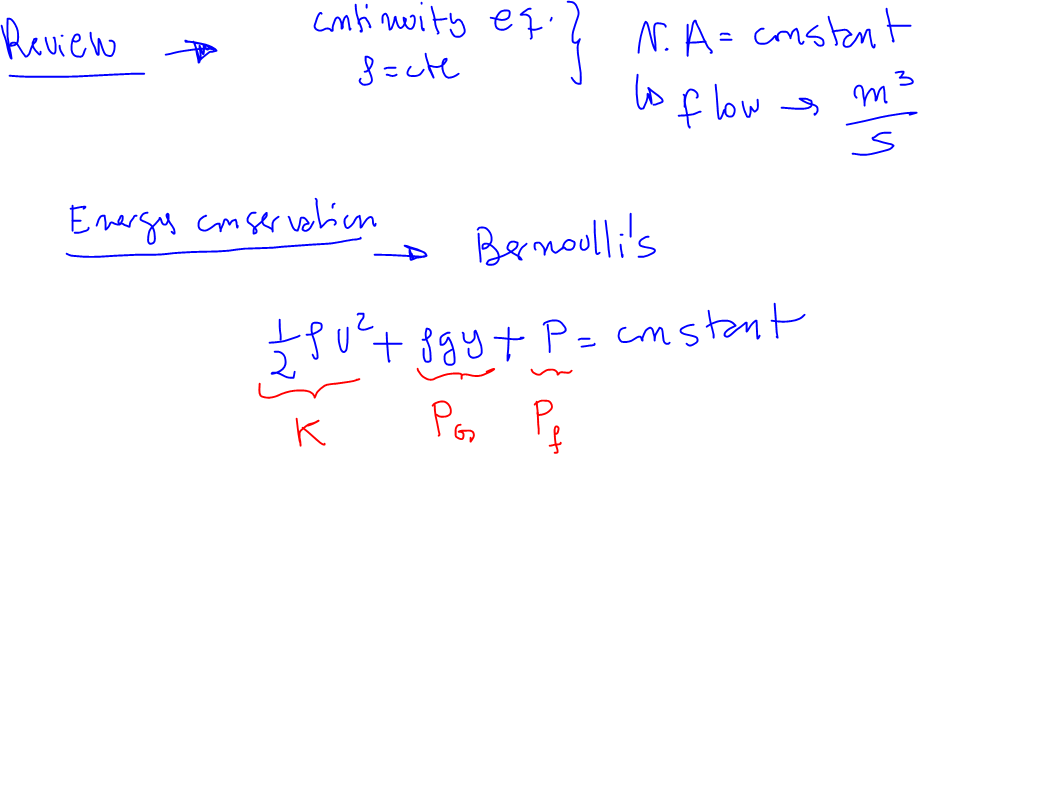 Review → continuity eq. } v. A = constant
ρ = cte ↳ flow → m³/s
Energy conservation → Bernoulli's
1/2 ρ v² + ρgy + P = constant
K P_G P_f